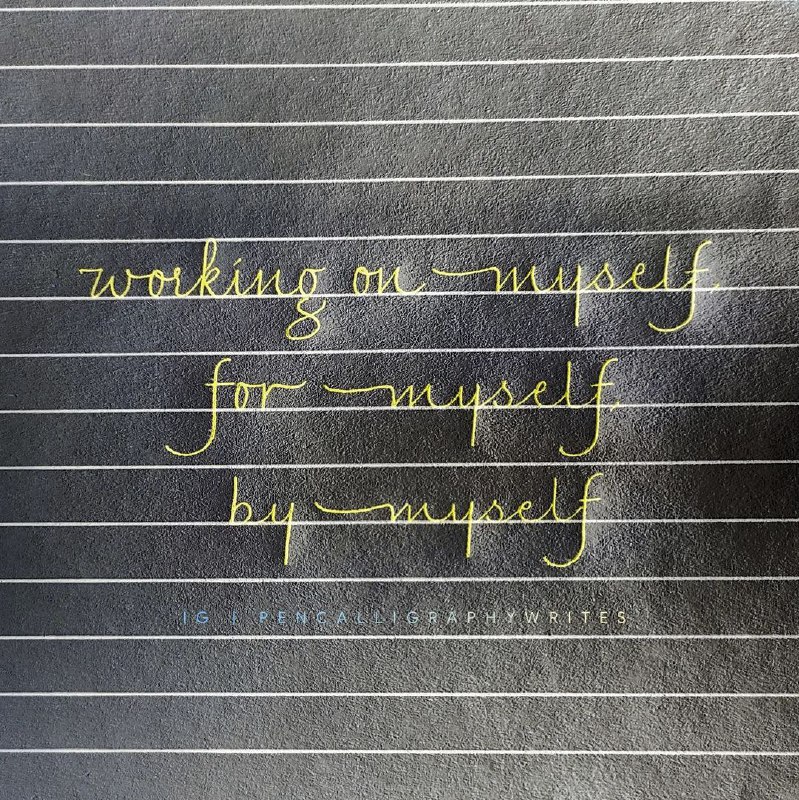 working on myself,
for myself,
by myself
IG / PENCALLIGRAPHYWRITES